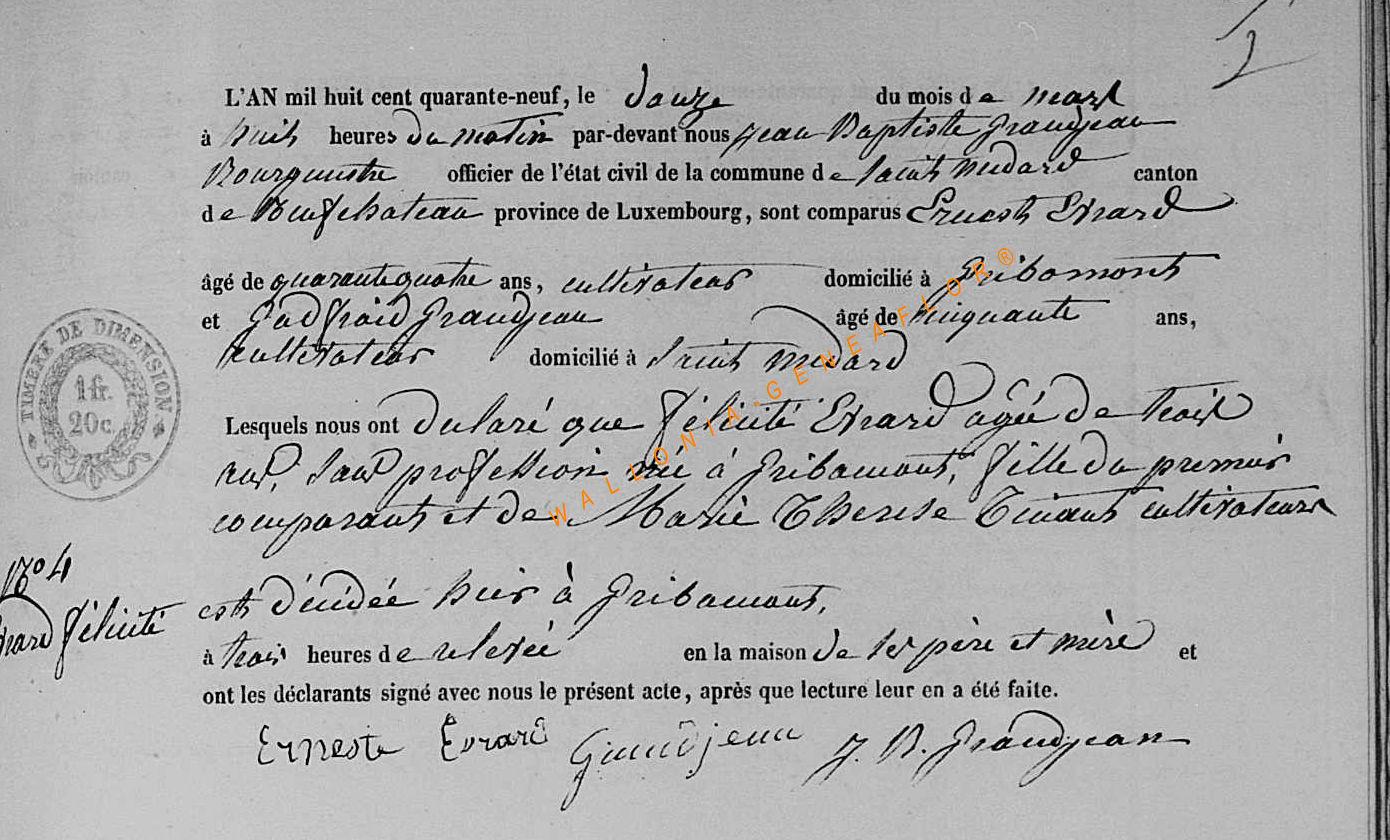 2
L'AN mil huit cent quarante-neuf, le douze du mois de mars
à huit heures du matin par-devant nous jean Baptiste grandjean
Bourgmestre officier de l'état civil de la commune de saint medard canton
de Neufchateau province de Luxembourg, sont comparus Ernest Evrard
âgé de quarante quatre ans, cultivateur domicilié à gribomont
et godfroid grandjean âgé de cinquante ans,
cultivateur domicilié à saint medard
Lesquels nous ont declaré que félicité Evrard agée de trois
ans, sans profession née à gribomont, fille du premier
comparant et de Marie Therese cultivateurs
est décédée hier à gribomont,
à trois heures de relevée en la maison de ses père et mère et
ont les déclarants signé avec nous le présent acte, après que lecture leur en a été faite.
Erneste Evrard Grandjean J. B. grandjean
N° 4
Evrard félicité
TIMBRE DE DIMENSION
1 fr.
20 c.
WALLONIA-GENEAFLOR®